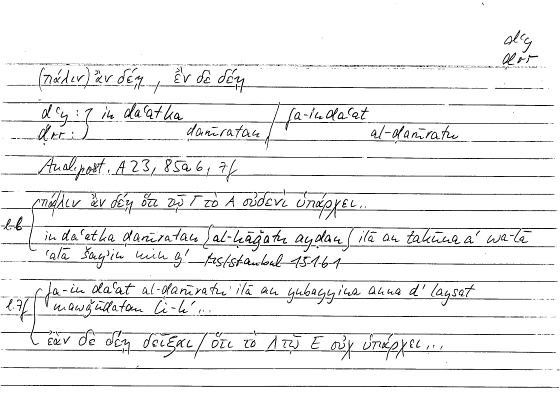 dʿy
ḍrr
(πάλιν) ἂν δέῃ, ἐὰν δὲ δέῃ
dʿy : } in daʿatka ḍarūratan / fa-in daʿat
ḍrr : } al-ḍarūratu
Anal. post. A 23, 85a6, 7f
l. 6 πάλιν ἂν δέῃ ὅτι τῷ Γ τὸ Α οὐδενὶ ὑπάρχει..
in daʿatka ḍarūratan {al-ḥāǧatu ayḍan} ilā an takūna aʾ wa-lā
ʿalā šayʾin min ǧʾ Ms Istanbul 1516 1
l. 7f fa-in daʿat al-ḍarūratu ilā an yubayyina anna dʾ laysat
mawǧūdatan li-hʾ...
ἐὰν δὲ δέῃ δεῖξαι / ὅτι τὸ Δ τῷ Ε οὐχ ὑπάρχει...